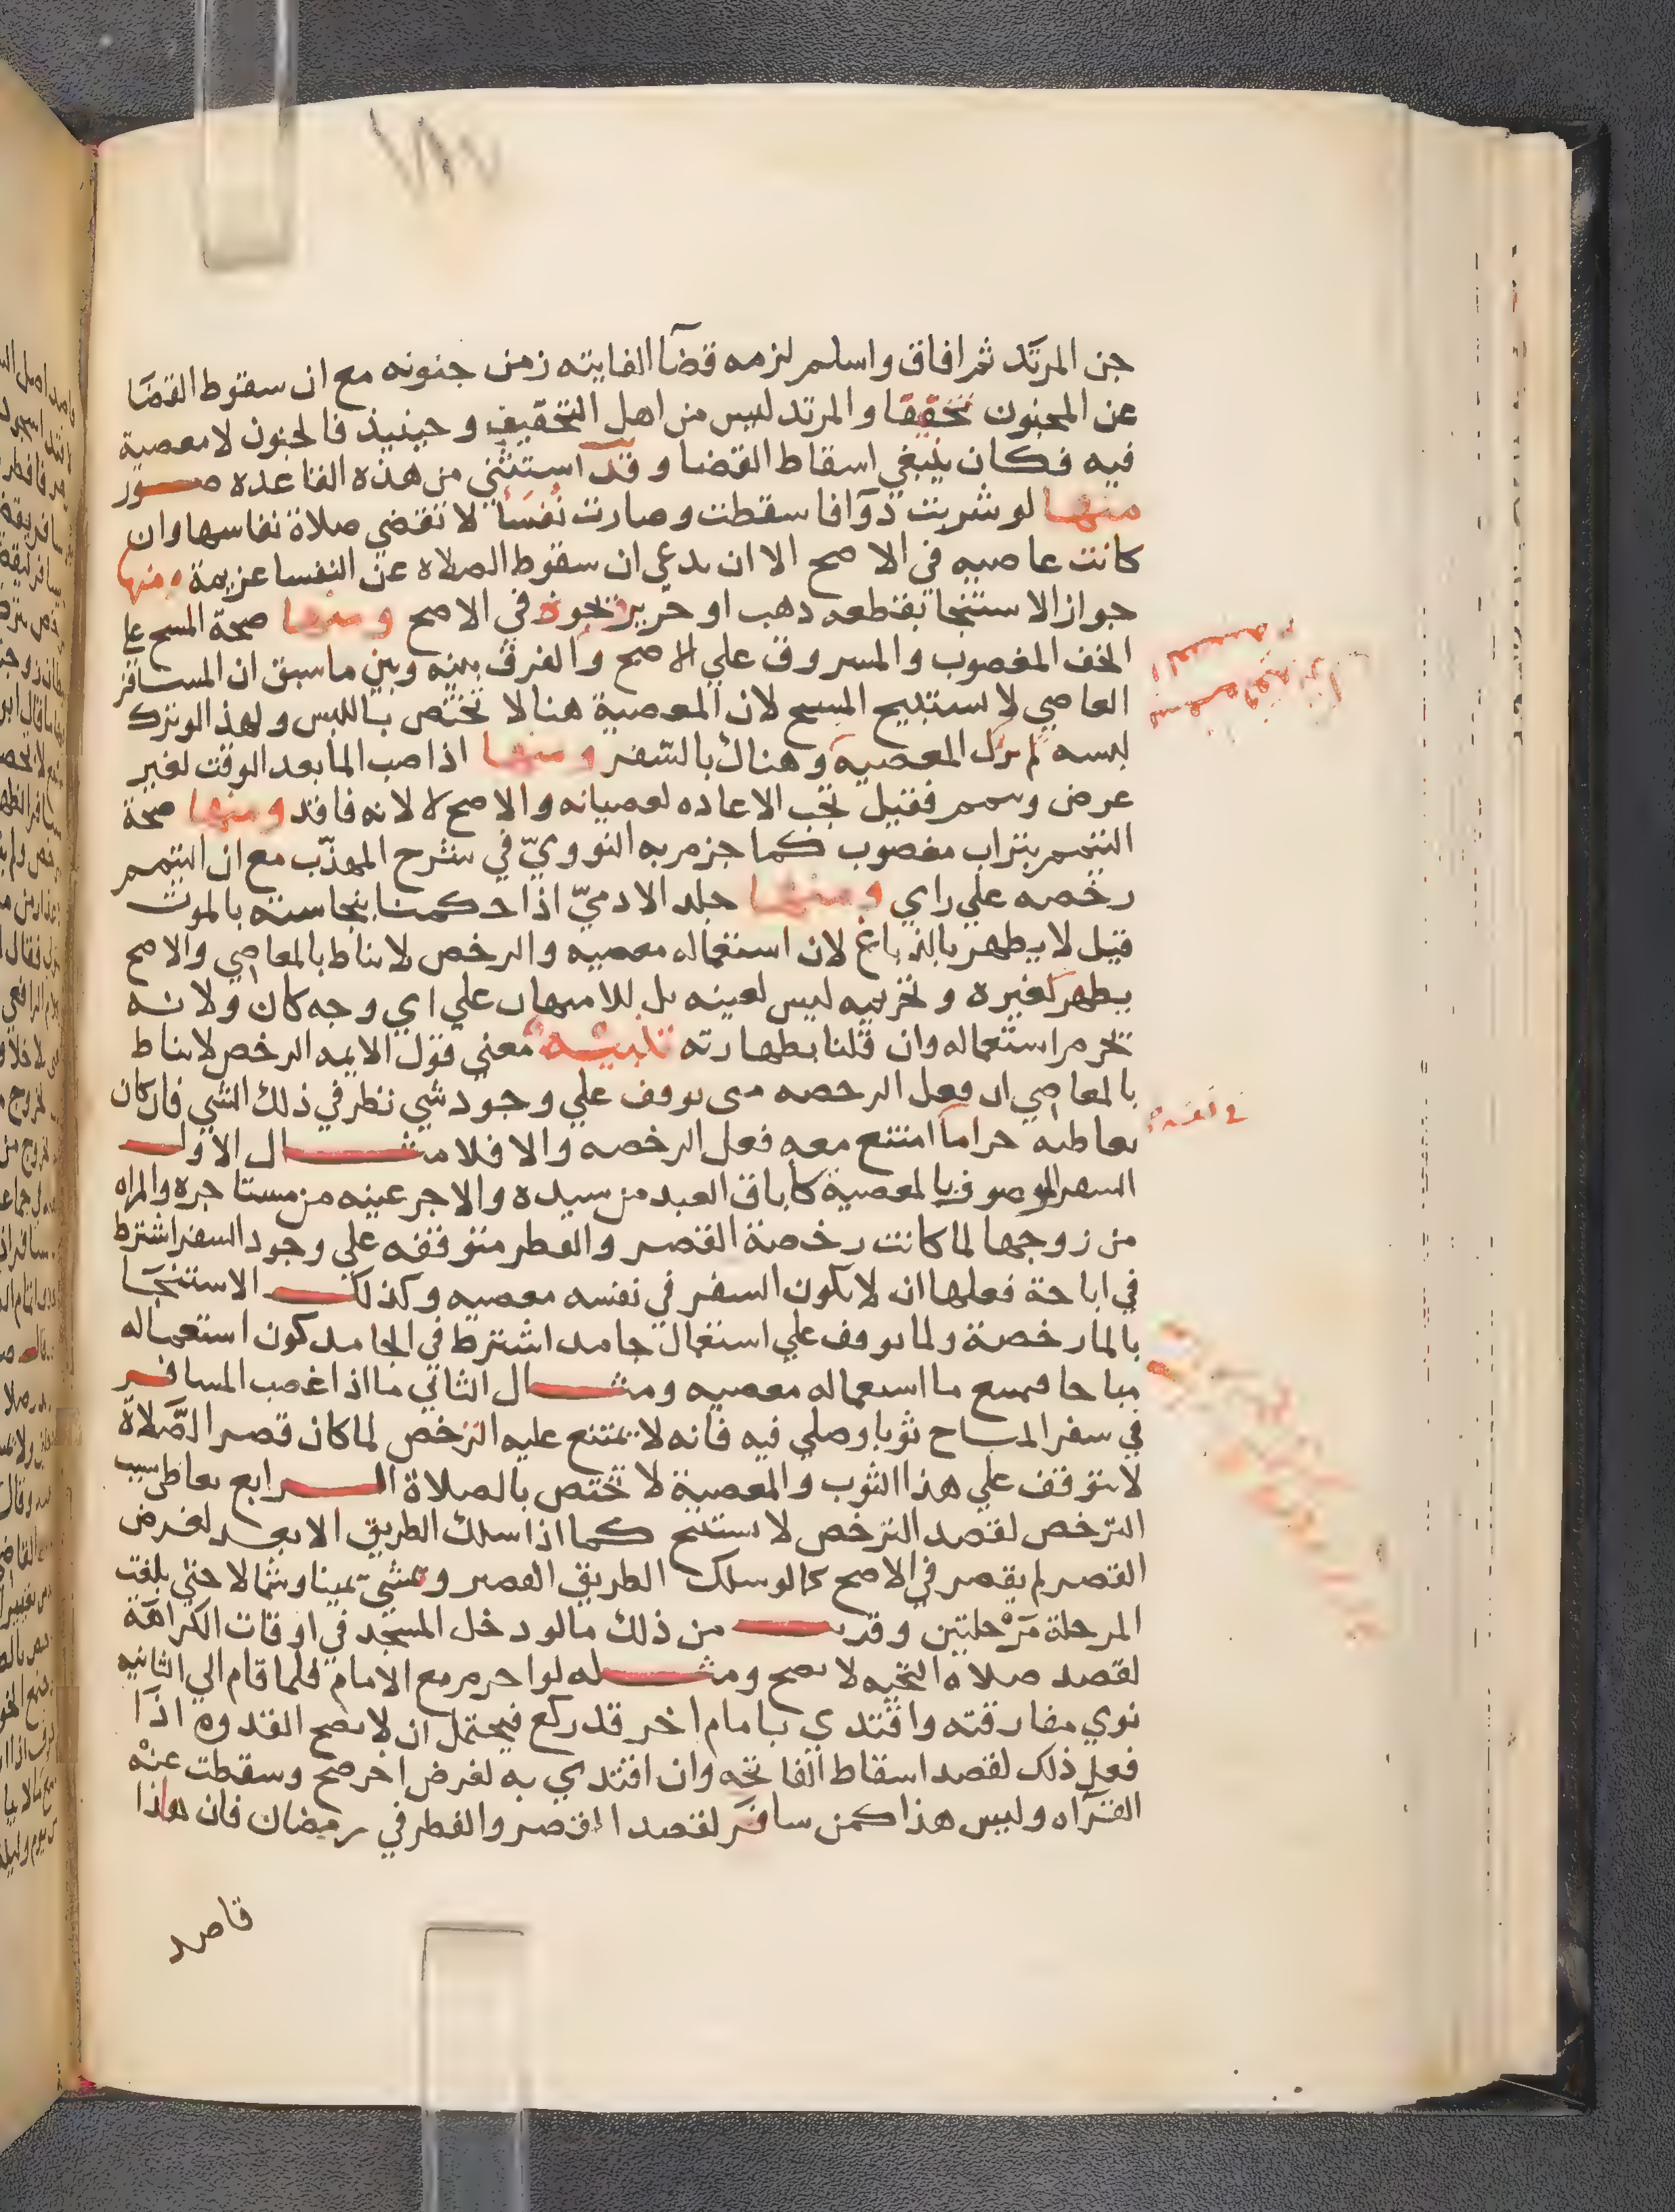 ١٨٧
جن المرتد ثم افاق واسلم لزمه قضا الفايته زمن جنونه مع ان سقوط القضا
عن المجنون تخفيفا والمرتد ليس من اهل التخفيف وحينيذ فالجنون لا معصية
فيه فكان ينبغي اسقاط القضا وقد استثني من هذه القاعده صور
منها لو شربت دوا فاسقطت وصارت نفسا لا تقضي صلاة نفاسها وان
كانت عاصيه في الاصح الا ان يدعي ان سقوط الصلاه عن النفسا عزيمة ومنها
جواز الاستنجا بقطعه دهب او حرير تجوز في الاصح ومنها صحة المسح علي
الخف المغصوب والمسروق علي الاصح والفرق بينه وبين ما سبق ان المسافر
العاصي لا يستبيح المسح لان المعصية هنا لا تختص باللبس ولهذا لو ترك
لبسه لم تزل المعصية وهناك بالسفر ومنها اذا صب الما بعد الوقت لغير
عرض وتيمم فقيل تجب الاعاده لعصيانه والاصح لا لانه فاقد ومنها صحة
التيمم بتراب مغصوب كما جزم به النووي في شرح المهذب مع ان التيمم
رخصه علي راي ومنها جلد الادمي اذا حكمنا بنجاسته بالموت
قيل لا يطهر بالدباغ لان استعماله معصيه والرخص لا تناط بالمعاصي والاصح
يطهر كغيره وتحريمه ليس لعينه بل للامتهان علي اي وجه كان ولانه
تحرم استعماله وان قلنا بطهارته تنبيه معني قول الايمه الرخص لا تناط
بالمعاصي ان فعل الرخصه متى توقف علي وجود شي نظر في ذلك الشي فان كان
تعاطيه حراما امتنع معه فعل الرخصه والا فلا مثال الاول
السفر الموصوف بالمعصية كاباق العبد من سيده والاجر عينه من مستاجره والمراه
من زوجها لما كانت رخصة القصر والفطر متوقفه علي وجود السفر اشترط
في اباحة فعلها ان لا يكون السفر في نفسه معصيه وكذلك الاستنجا
بالما رخصة ولما توقف علي استعمال جامد اشترط في الجامد كون استعماله
مباحا فمنع ما استعماله معصيه ومثال الثاني ما اذا غصب المسافر
في سفر المباح ثوبا وصلي فيه فانه لا يمتنع عليه الترخص لما كان قصر الصلاة
لا يتوقف علي هذا الثوب والمعصية لا تختص بالصلاة الرابع تعاطي سبب
الترخص لقصد الترخص لا يستبيح كما اذا سلك الطريق الابعد لغرض
القصر لم يقصر في الاصح كما لو سلك الطريق القصير ومشي يمينا وشمالا حتي بلغت
المرحلة مرحلتين وقريب من ذلك ما لو دخل المسجد في اوقات الكراهة
لقصد صلاه التحيه لا تصح ومثله لو احرم مع الامام فلما قام الي الثانيه
نوي مفارقته واقتدي بامام اخر قد ركع فيحتمل ان لا تصح القدوه اذا
فعل ذلك لقصد اسقاط الفاتحه وان اقتدي به لغرض اخر صح وسقطت عنه
القراه وليس هذا كمن سافر لقصد القصر والفطر في رمضان فان هذا
قاصد